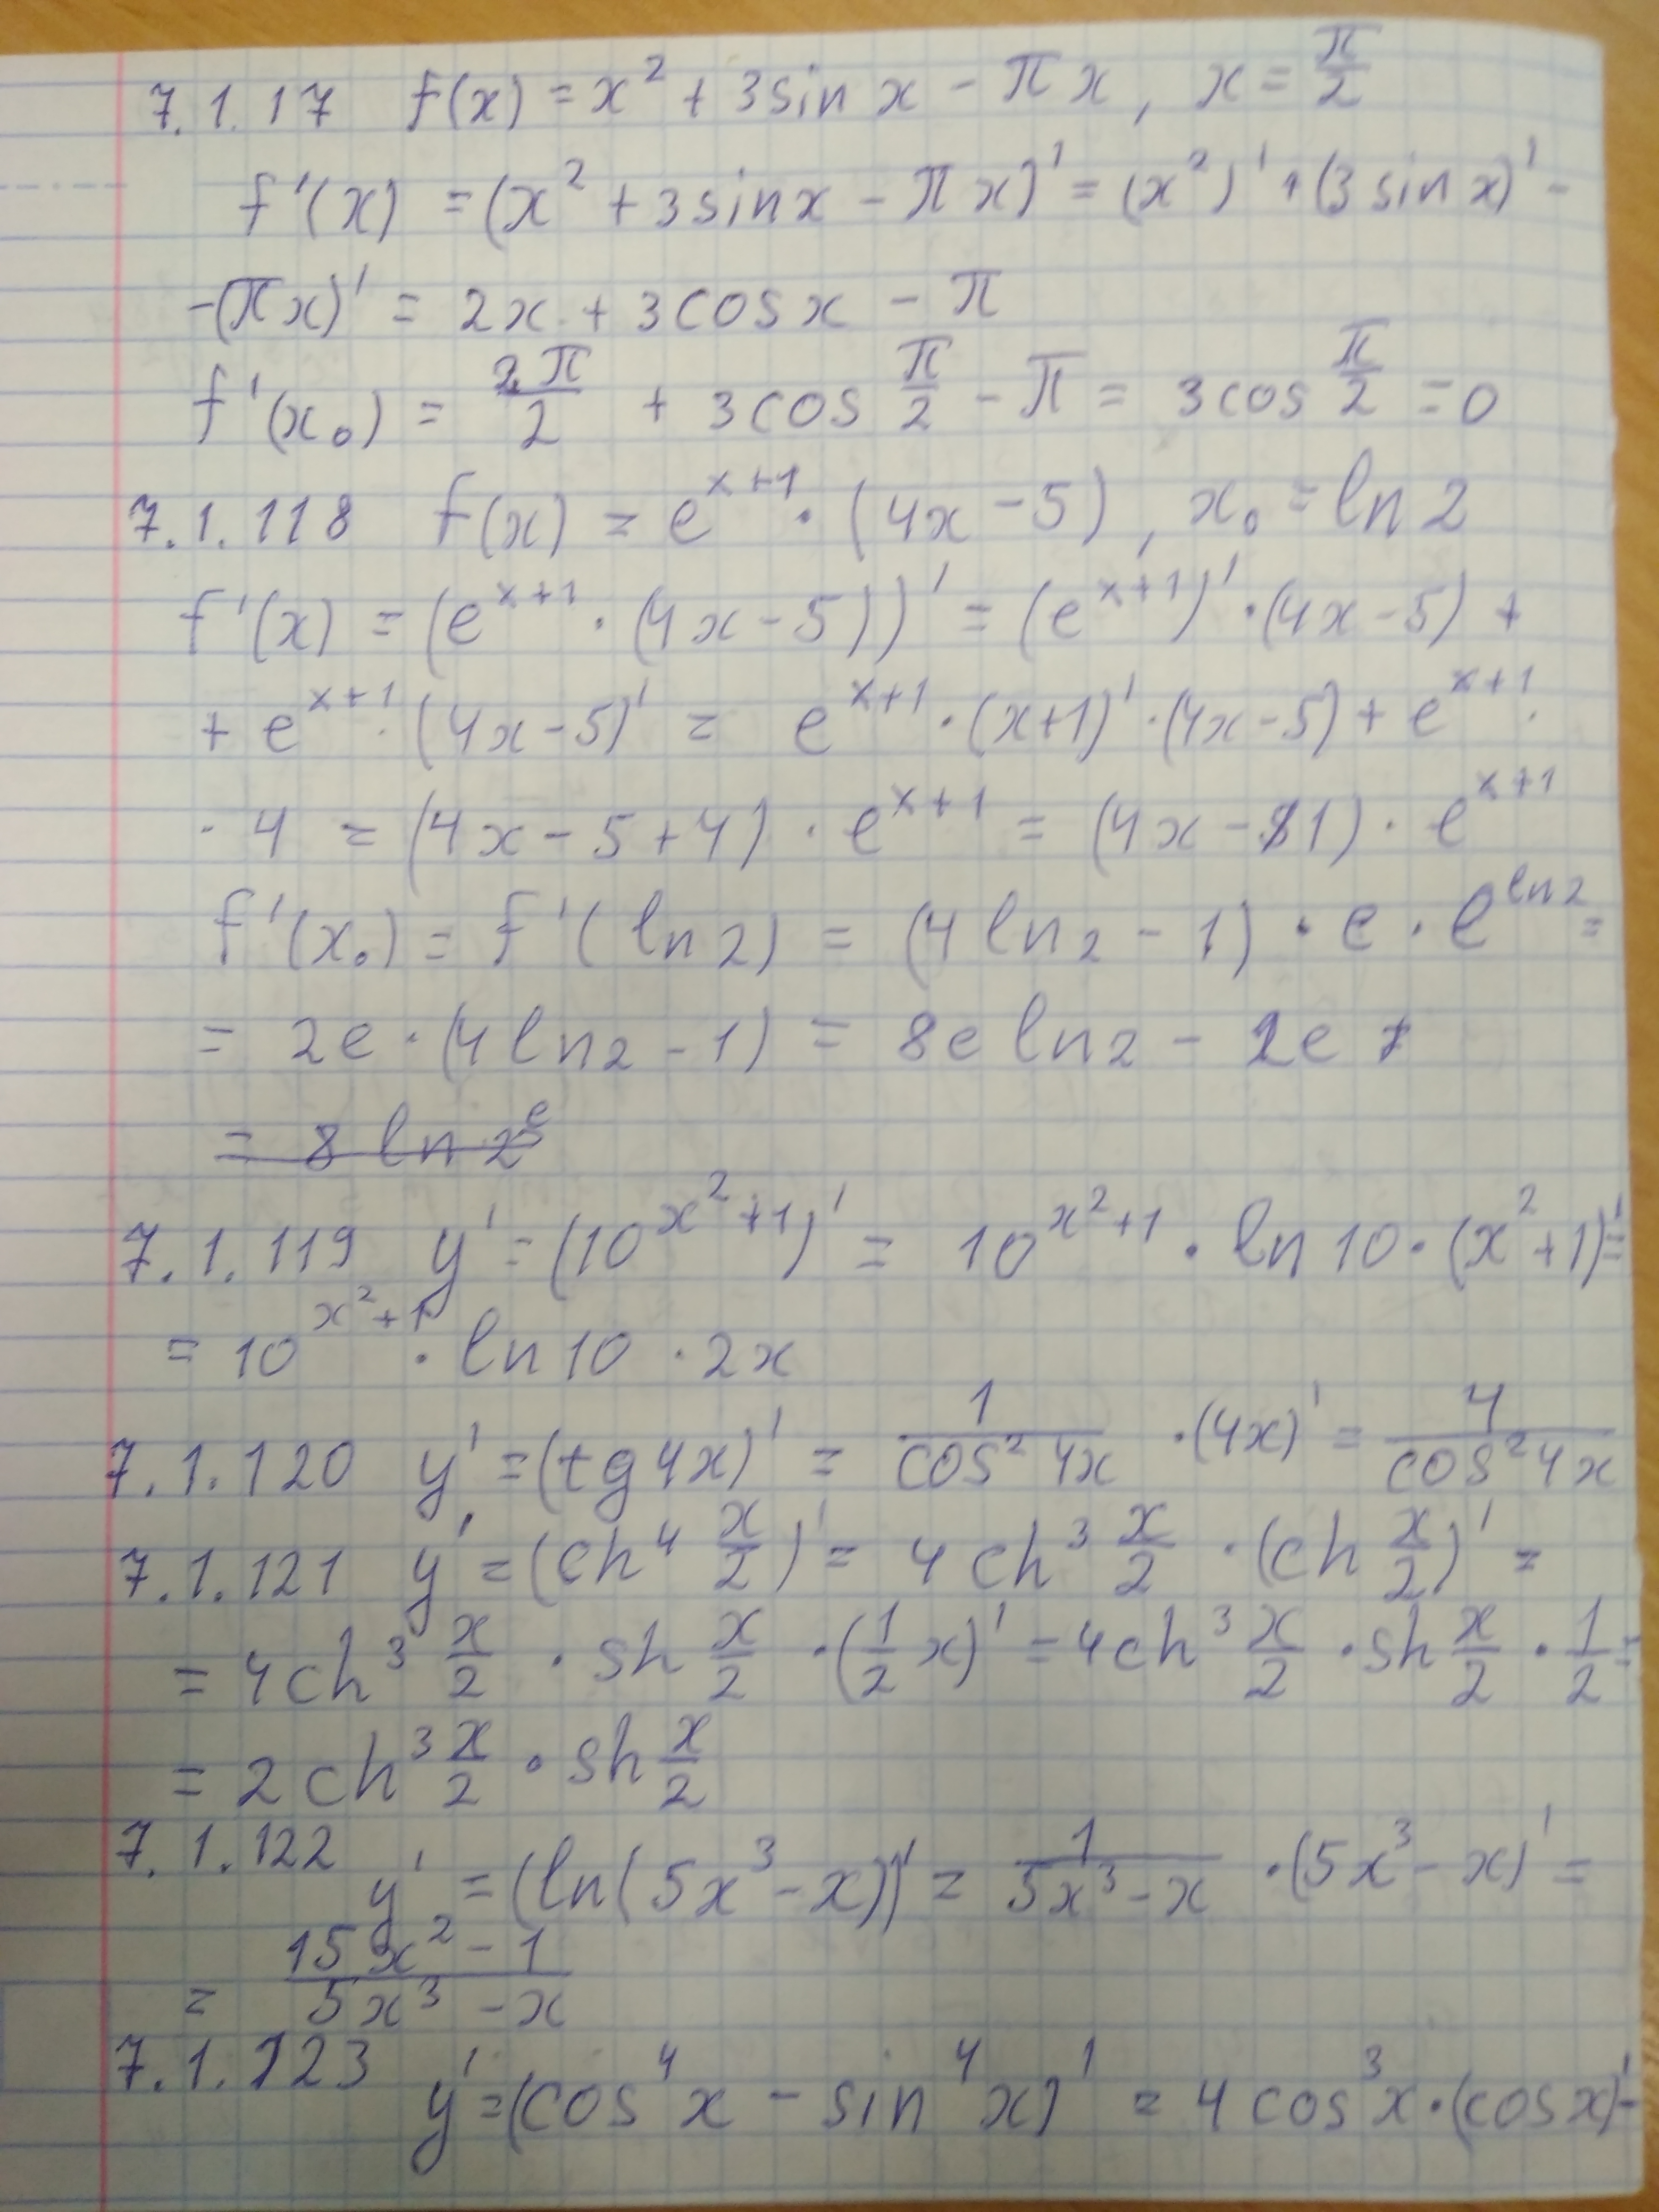 7.1.17 f(x) = x² + 3sin x - πx, x = π/2
f'(x) = (x² + 3sinx - πx)' = (x²)' + (3sinx)' -
-(πx)' = 2x + 3cosx - π
f'(x₀) = 2π/2 + 3cos π/2 - π = 3cos π/2 = 0
7.1.118 f(x) = e^(x+1) · (4x - 5), x₀ = ln 2
f'(x) = (e^(x+1) · (4x - 5))' = (e^(x+1))' · (4x - 5) +
+ e^(x+1) · (4x - 5)' = e^(x+1) · (x+1)' · (4x - 5) + e^(x+1) ·
· 4 = (4x - 5 + 4) · e^(x+1) = (4x - 1) · e^(x+1)
f'(x₀) = f'(ln2) = (4ln2 - 1) · e · e^(ln2) =
= 2e · (4ln2 - 1) = 8e ln2 - 2e
= 8 ln 2^e
7.1.119 y' = (10^(x²+1))' = 10^(x²+1) · ln10 · (x²+1)' =
= 10^(x²+1) · ln10 · 2x
7.1.120 y' = (tg4x)' = 1/(cos²4x) · (4x)' = 4/(cos²4x)
7.1.121 y' = (ch⁴ x/2)' = 4ch³ x/2 · (ch x/2)' =
= 4ch³ x/2 · sh x/2 · (1/2 x)' = 4ch³ x/2 · sh x/2 · 1/2 =
= 2ch³ x/2 · sh x/2
7.1.122 y' = (ln(5x³ - x))' = 1/(5x³ - x) · (5x³ - x)' =
= (15x² - 1)/(5x³ - x)
7.1.123 y' = (cos⁴x - sin⁴x)' = 4cos³x · (cosx)' -